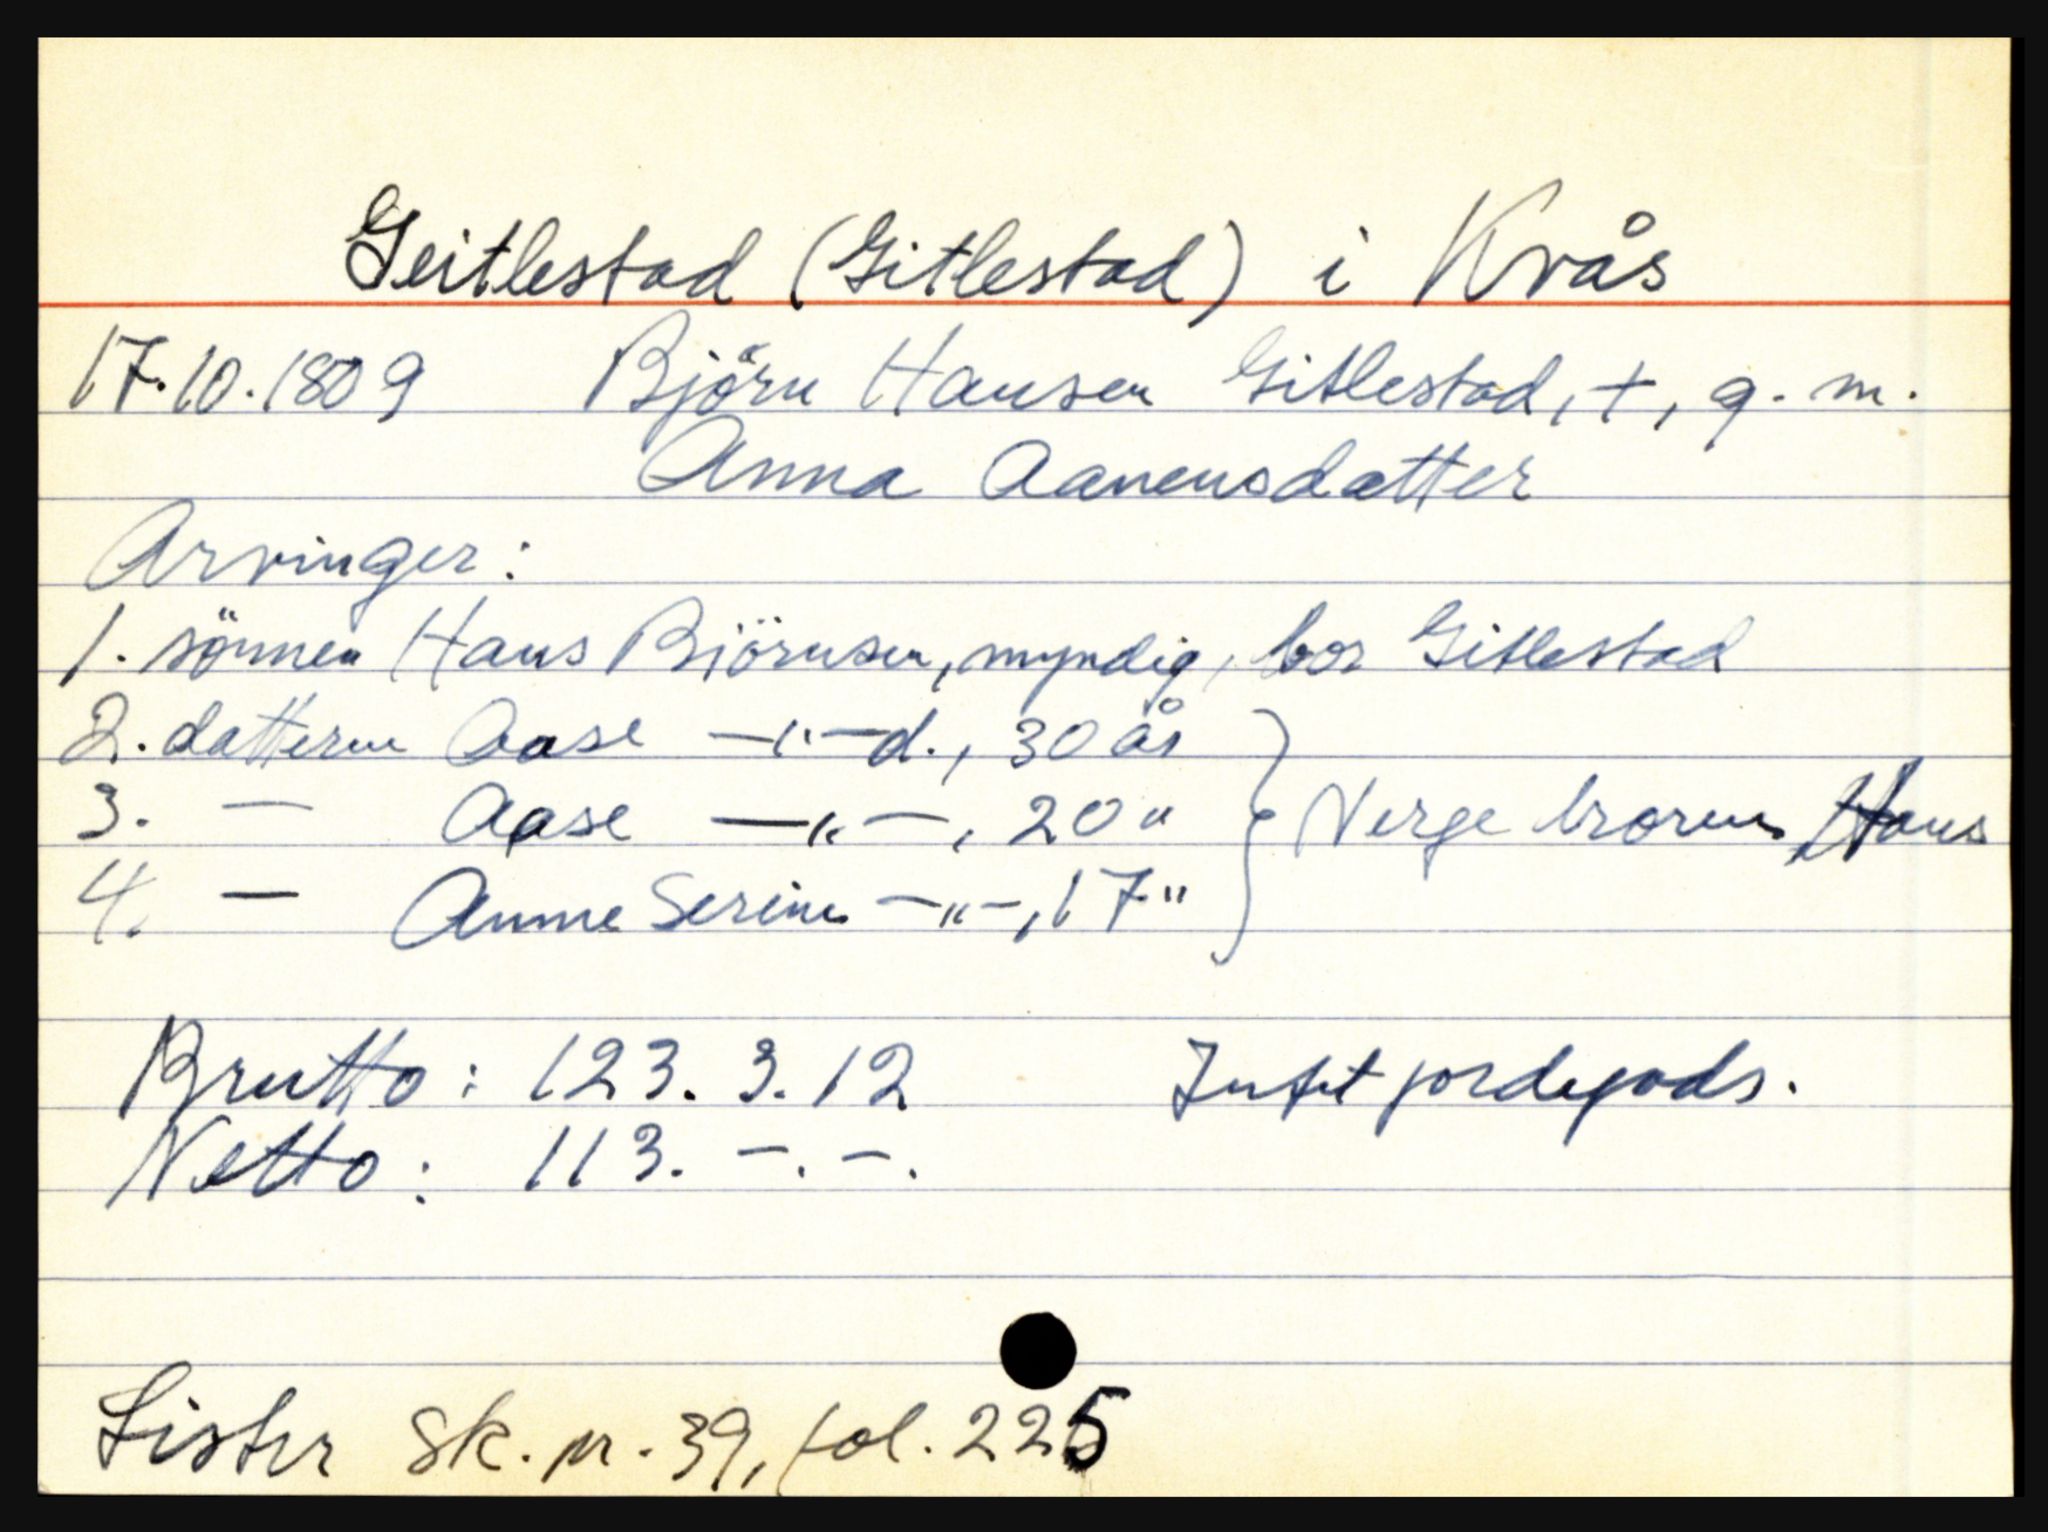 Geitlestad (Gitlestad) i Kvås
17.10.1809 Björn Hansen Gitlestad, +, g. m.
Anna Aanensdatter
Arvinger:
1. sönnen Hans Björnsen, myndig, bor Gitlestad
2. datteren Aase —"— d., 30 år
3. — Aase —"—, 20 "
4. — Anne Serine —"—, 17 "
Verge broren Hans
Brutto: 123. 3. 12 Intet jordegods.
Netto: 113. –. –.
Lister Sk. pr. 39, fol. 225